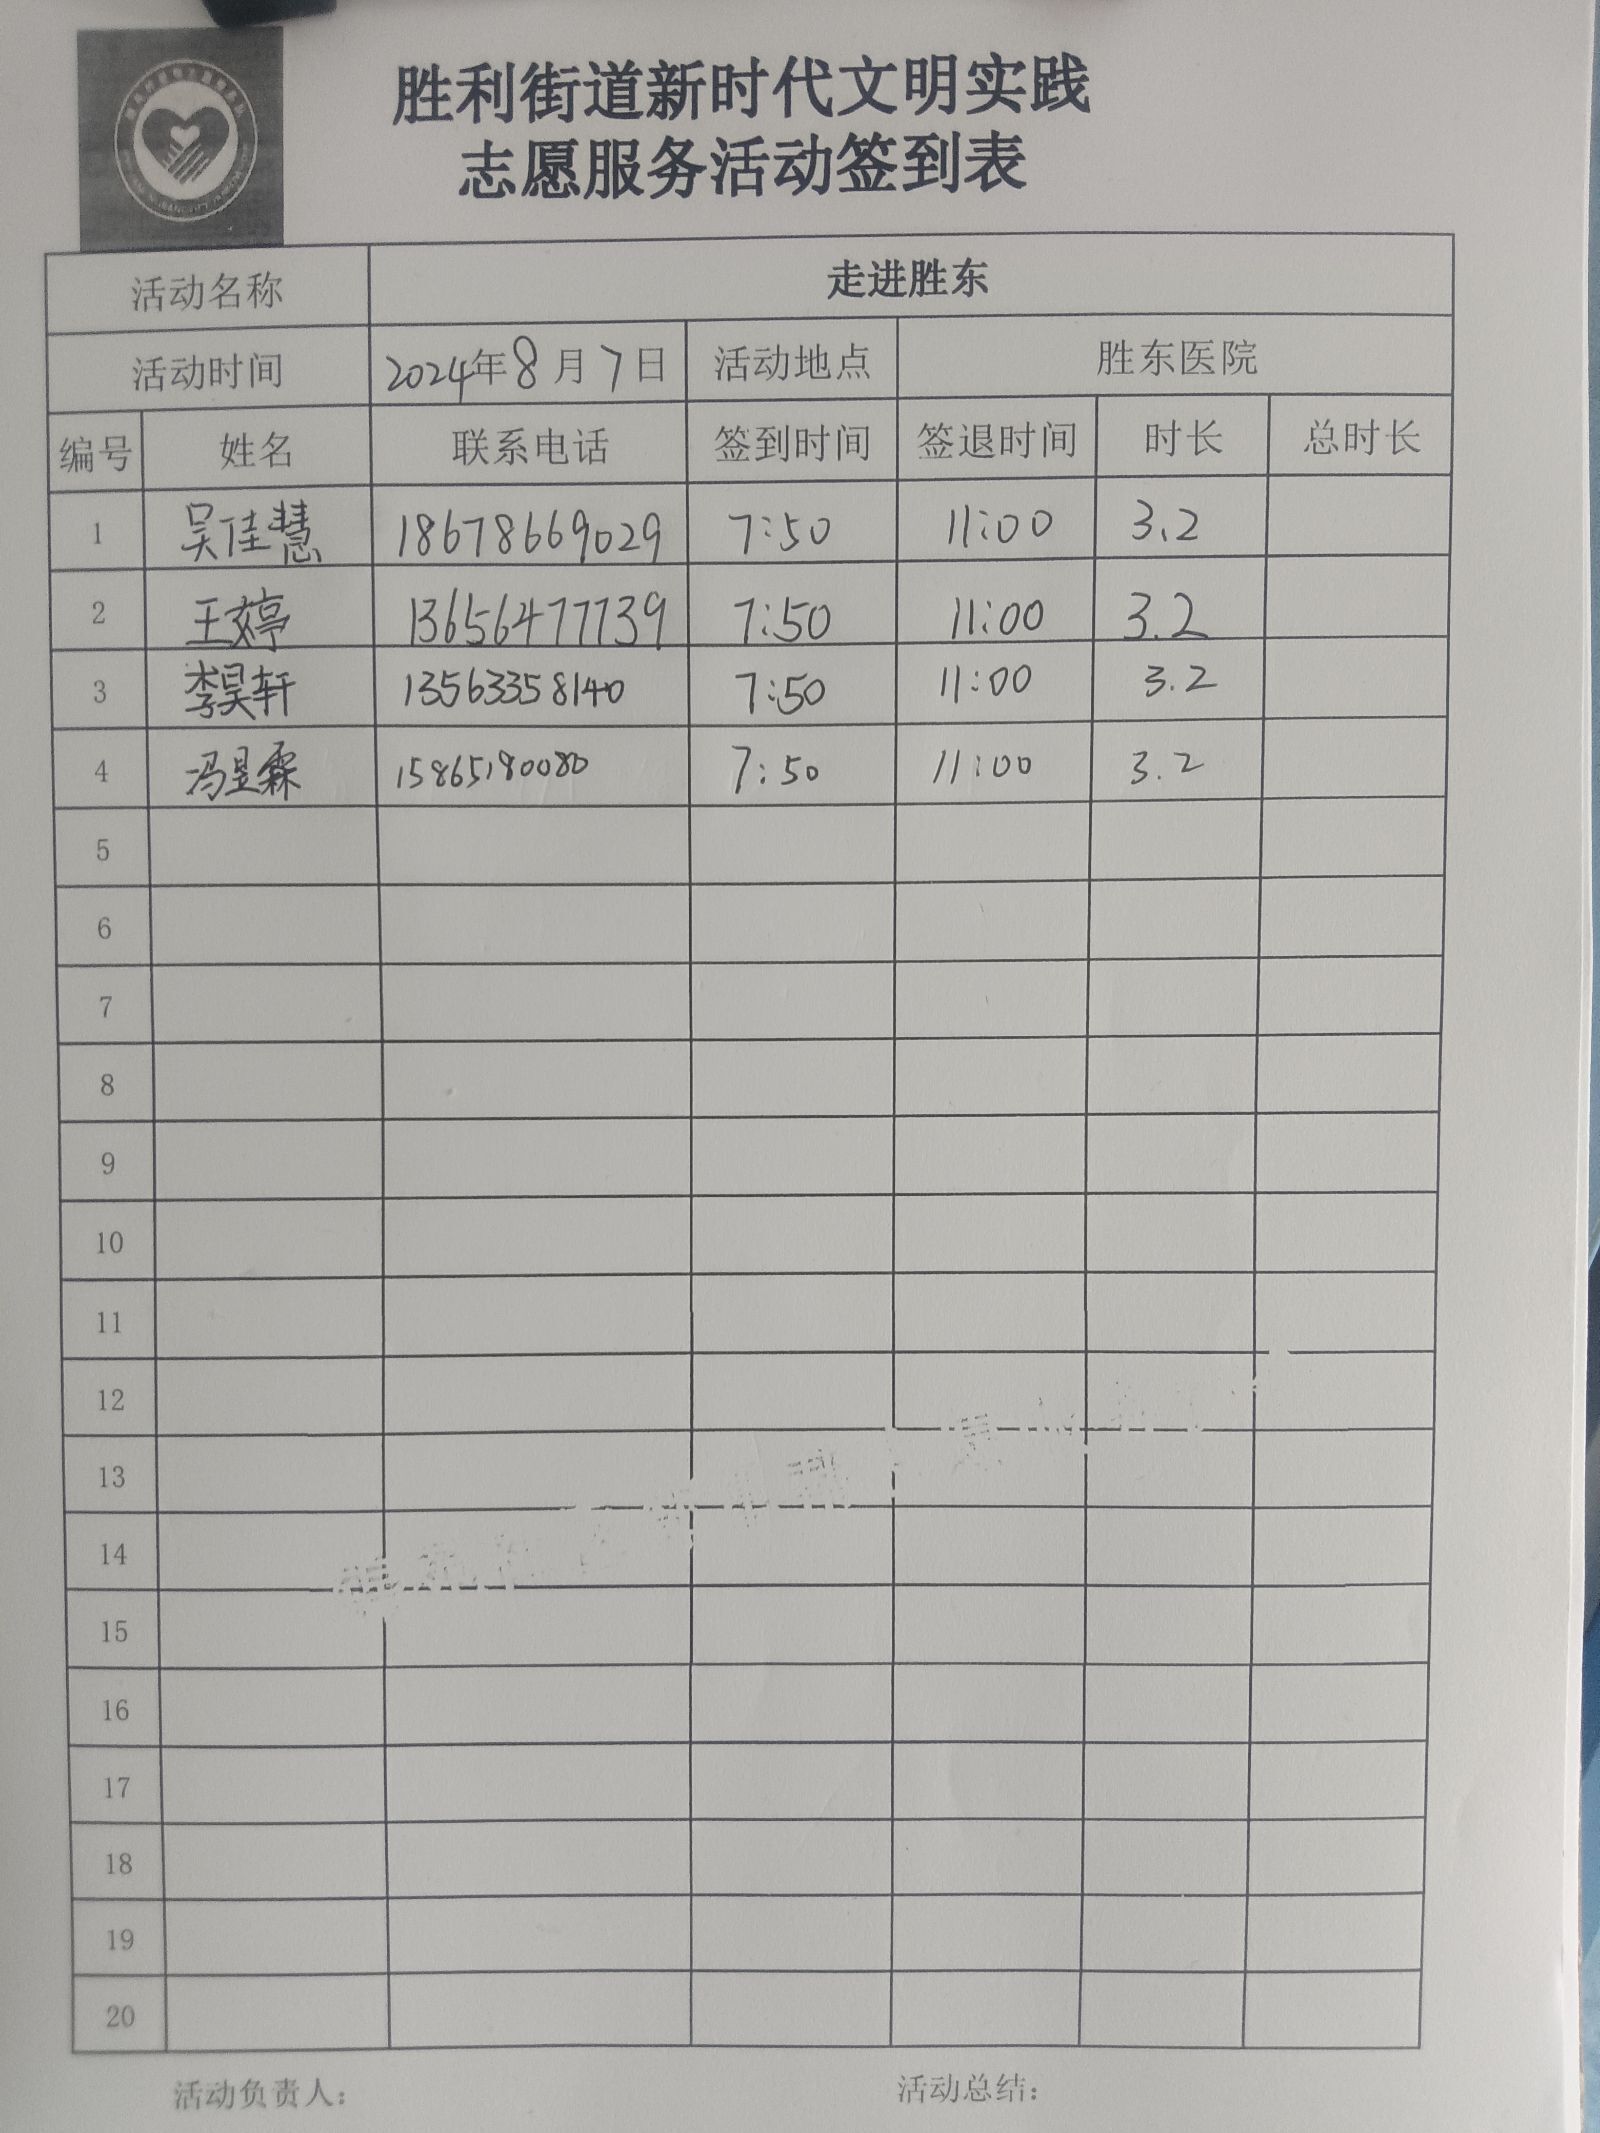 胜利街道新时代文明实践
志愿服务活动签到表
活动名称 走进胜东
活动时间 2024年8月7日 活动地点 胜东医院
编号 姓名 联系电话 签到时间 签退时间 时长 总时长
1 吴佳慧 18678669029 7:50 11:00 3.2
2 王婷 13656477739 7:50 11:00 3.2
3 李昊轩 13563358140 7:50 11:00 3.2
4 冯昱霖 15865180080 7:50 11:00 3.2
5
6
7
8
9
10
11
12
13
14
15
16
17
18
19
20
活动负责人: 活动总结: